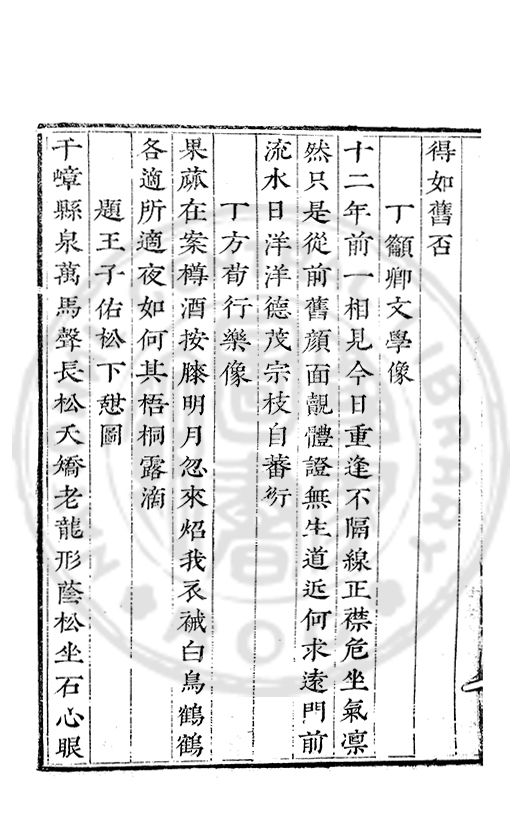 得如舊否
丁籲卿文學像
十二年前一相見今日重逢不隔線正襟危坐氣凛
然只是從前舊顏面覿體證無生道近何求遠門前
流水日洋洋德茂宗枝自蕃衍
丁方荀行樂像
果蓏在案樽酒按膝明月忽來炤我衣裓白鳥鶴鶴
各適所適夜如何其梧桐露滴
題王子佑松下憇圖
千嶂縣泉萬馬聲長松夭矯老龍形蔭松坐石心眼